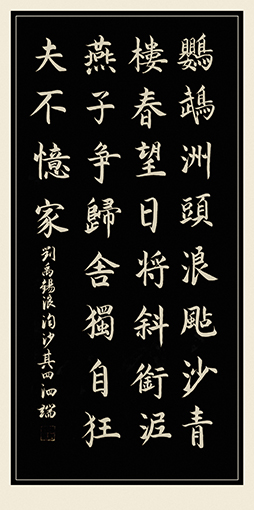 鸚鵡洲頭浪颭沙青
樓春望日將斜銜泥
燕子爭歸舍獨自狂
夫不憶家
劉禹錫浪淘沙其四泗端